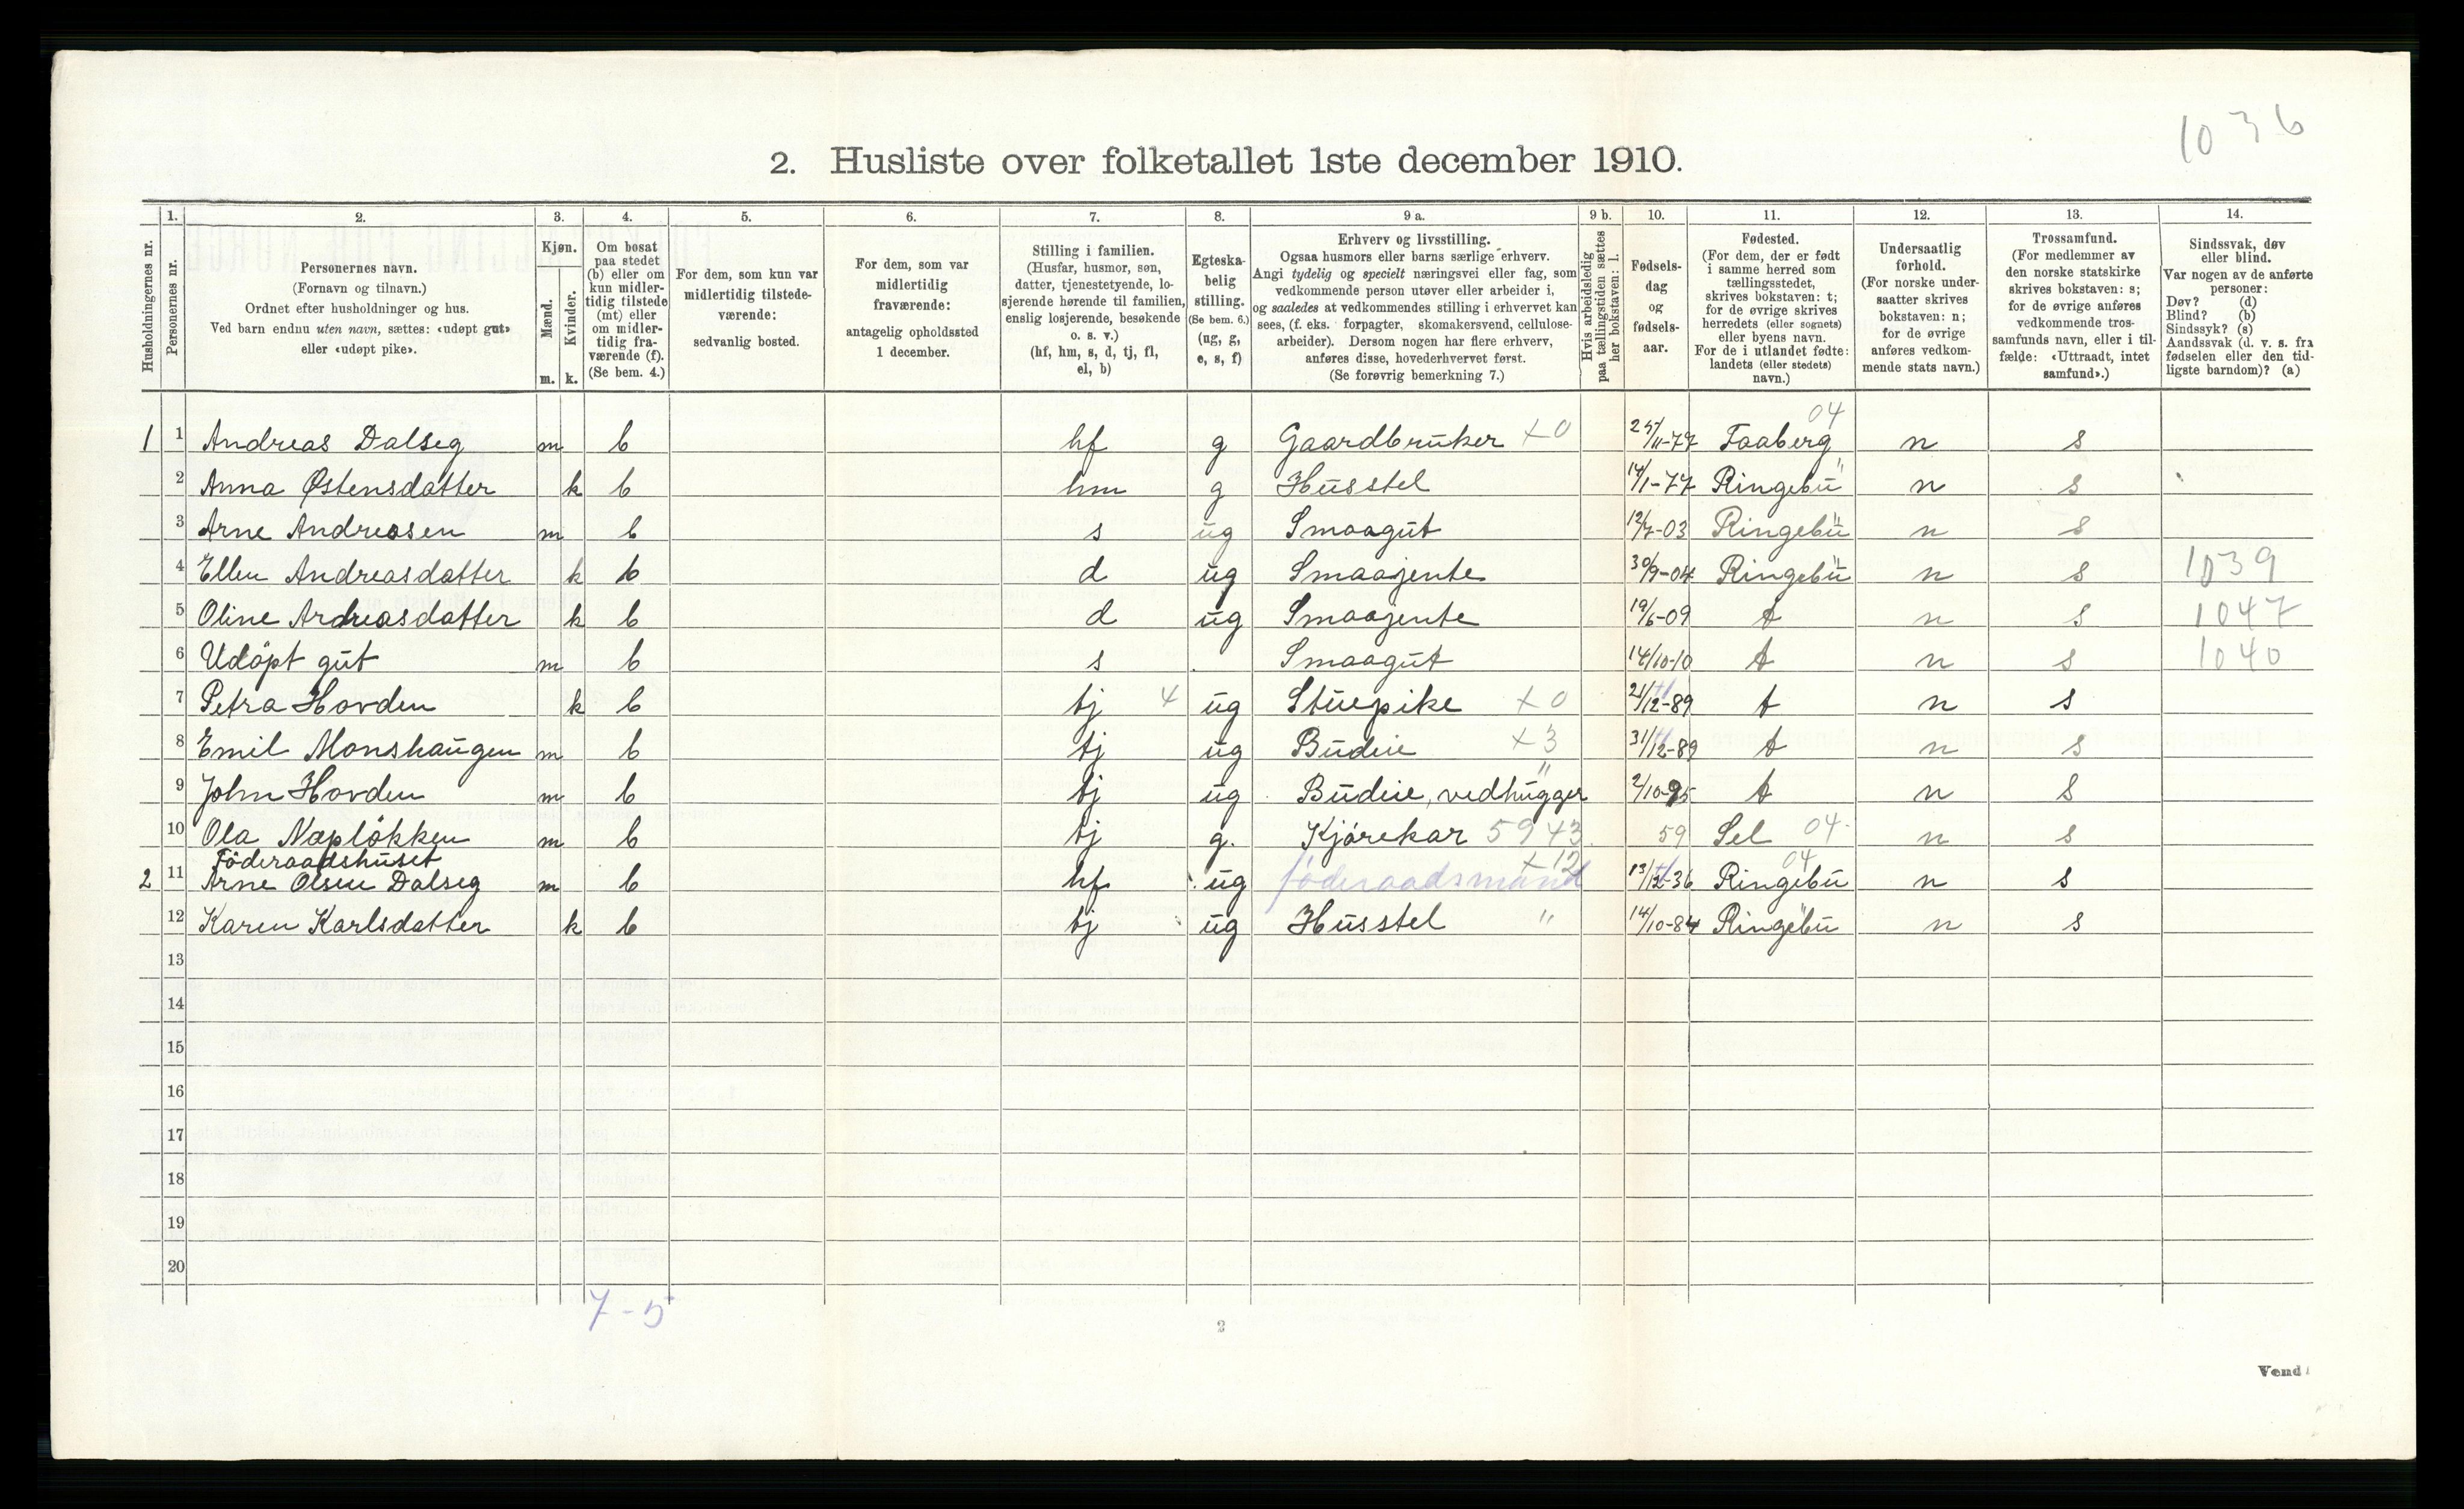 1036
2. Husliste over folketallet 1ste december 1910.
Husholdningernes nr.
1. Personernes nr.
2. Personernes navn.
(Fornavn og tilnavn.)
Ordnet efter husholdninger og hus.
Ved barn endnu uten navn, sættes: «udøpt gut»
eller «udøpt pike».
3. Kjøn.
Mænd. m.
Kvinder. k.
4. Om bosat
paa stedet
(b) eller om
kun midler-
tidig tilstede
(mt) eller
om midler-
tidig fra-
værende (f).
(Se bem. 4.)
5. For dem, som kun var
midlertidig tilstede-
værende:
sedvanlig bosted.
6. For dem, som var
midlertidig
fraværende:
antagelig opholdssted
1 december.
7. Stilling i familien.
(Husfar, husmor, søn,
datter, tjenestetyende, lo-
sjerende hørende til familien,
enslig losjerende, besøkende
o. s. v.)
(hf, hm, s, d, tj, fl,
el, b)
8. Egteska-
belig
stilling.
(Se bem. 6.)
(ug, g,
e, s, f)
9 a. Erhverv og livsstilling.
Ogsaa husmors eller barns særlige erhverv.
Angi tydelig og specielt næringsvei eller fag, som
vedkommende person utøver eller arbeider i,
og saaledes at vedkommendes stilling i erhvervet kan
sees, (f. eks. forpagter, skomakersvend, cellulose-
arbeider). Dersom nogen har flere erhverv,
anføres disse, hovederhvervet først.
(Se forøvrig bemerkning 7.)
9 b. Hvis arbeidsledig
paa tællingstiden sættes
her bokstaven: l.
10. Fødsels-
dag
og
fødsels-
aar.
11. Fødested.
(For dem, der er født
i samme herred som
tællingsstedet,
skrives bokstaven: t;
for de øvrige skrives
herredets (eller sognets)
eller byens navn.
For de i utlandet fødte:
landets (eller stedets)
navn.)
12. Undersaatlig
forhold.
(For norske under-
saatter skrives
bokstaven: n;
for de øvrige
anføres vedkom-
mende stats navn.)
13. Trossamfund.
(For medlemmer av
den norske statskirke
skrives bokstaven: s;
for de øvrige anføres
vedkommende tros-
samfunds navn, eller i til-
fælde: «Uttraadt, intet
samfund».)
14. Sindssvak, døv
eller blind.
Var nogen av de anførte
personer:
Døv? (d)
Blind? (b)
Sindssyk? (s)
Aandssvak (d. v. s. fra
fødselen eller den tid-
ligste barndom)? (a)
1 1 Andreas Dalseg m b hf g Gaardbruker +0 25/11-77 Faaberg 04 n s
2 Anna Østensdatter k b hm g Husstel 14/1-77 Ringebu " n s
3 Arne Andreasen m b s ug Smaagut 12/7-03 Ringebu " n s
4 Ellen Andreasdatter k b d ug Smaajente 30/9-04 Ringebu " n s 1039
5 Oline Ardreasdatter k b d ug Smaajente 19/6-09 t n s 1047
6 Udöpt gut m b s Smaagut 14/10-10 t n s 1040
7 Petra Hovden k b tj 4 ug Stuepike +0 21/12-89 t n s
8 Emil Monshaugen m b tj ug Budeie +3 31/12-89 t n s
9 John Hovden m b tj ug Budeie, vedhugger " 2/10-95 t n s
10 Ola Næplökken m b tj g. Kjörekar 5943 59 Sel 04 n s
Föderaadshuset
2 11 Arne Olsen Dalseg m b hf ug föderaadsmand +12 13/12-36 Ringebu 04 n s
12 Karen Karlsdatter k b tj ug Husstel " 14/10-84 Ringebu " n s
13
14
15
16
17
18
19
20
7-5
2
Vend!